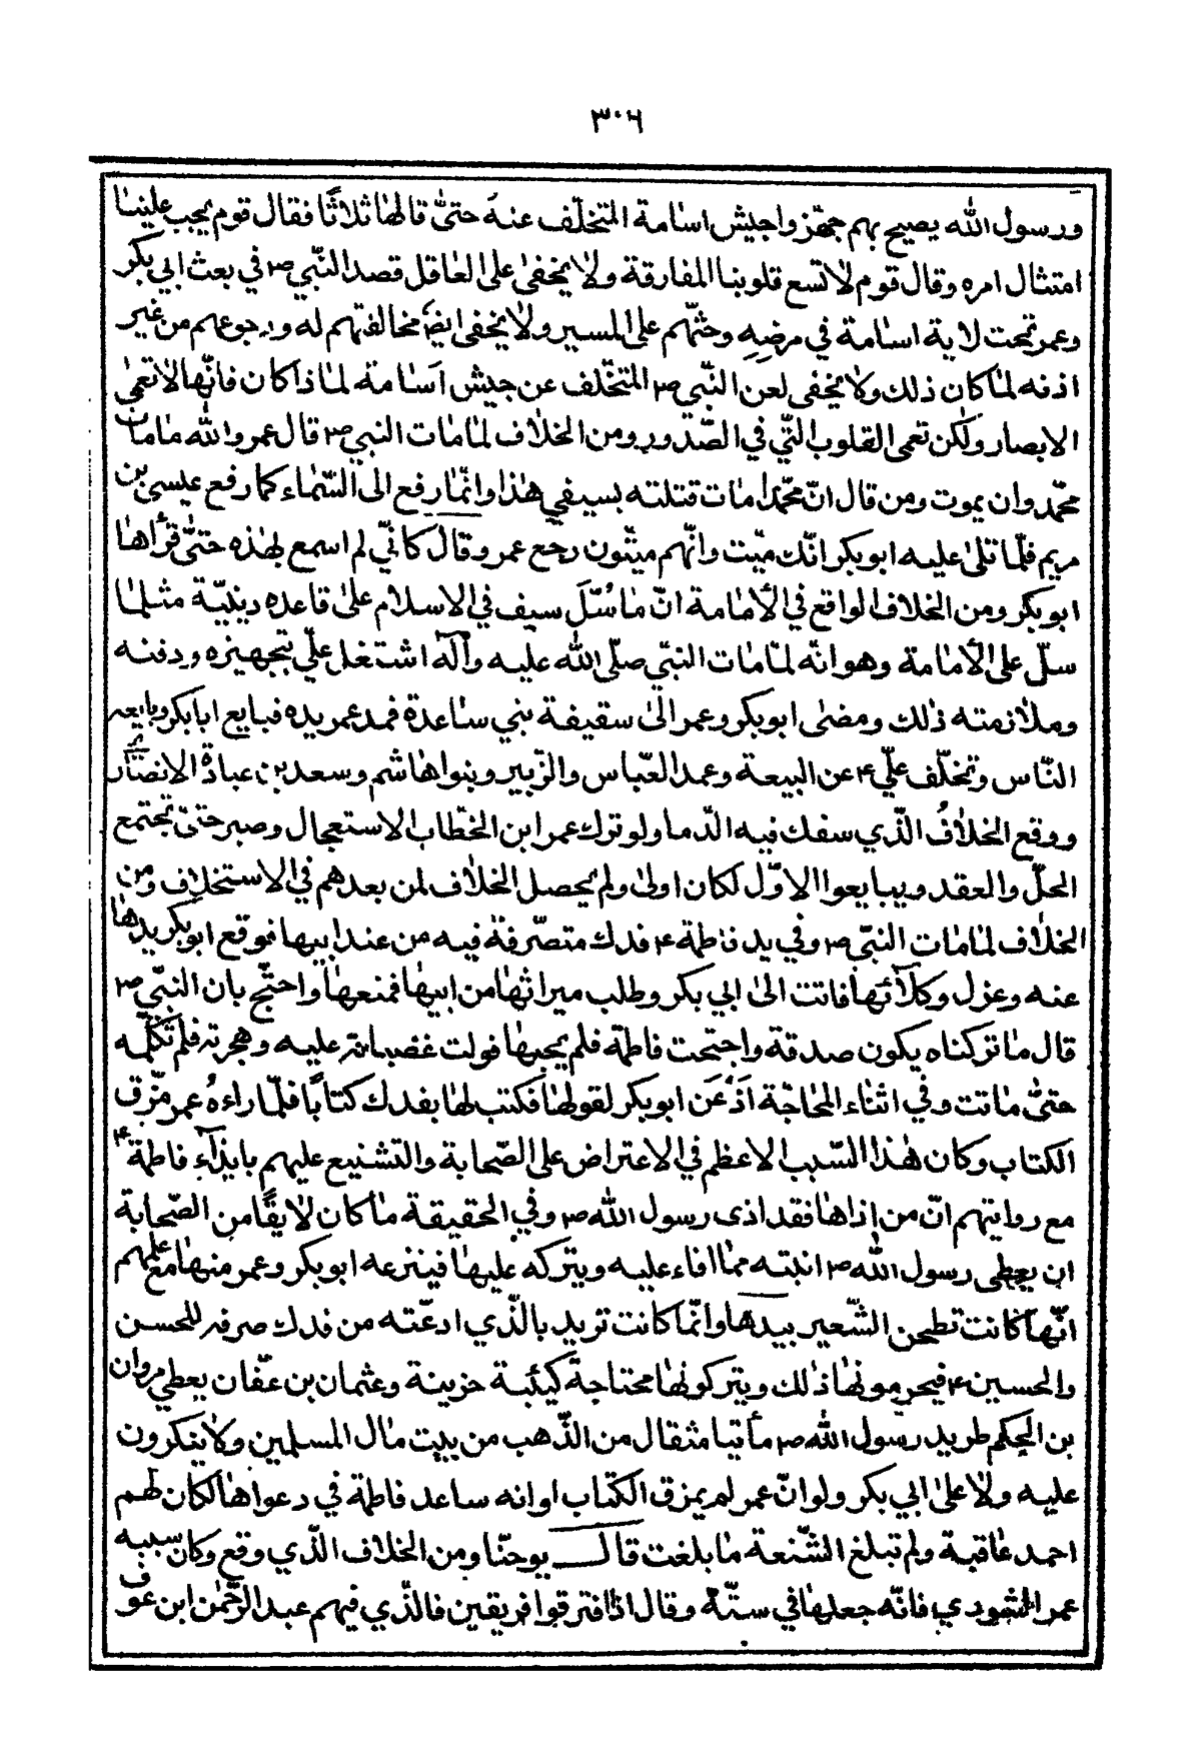 ٣٠٦
ورسول الله يصيح بهم جهّزوا جيش اسامة المتخلّف عنه حتّى قالها ثلاثًا فقال قوم يجب علينا
امتثال امره وقال قوم لا تسع قلوبنا المفارقة ولا يخفى على العاقل قصد النّبي ص في بعث ابي بكر
وعمر تحت لاية اسامة في مرضه وحثّهم على المسير ولا يخفى ايضا مخالفتهم له ورجوعهم من غير
اذنه لما كان ذلك ولا يخفى لعن النّبي ص المتخّلف عن جيش اسامة لماذا كان فانّها لا تعمى
الابصار ولكن تعمى القلوب الّتي في الصّدور ومن الخلاف لما مات النبي ص قال عمر والله ما مات
محّمد وان يموت ومن قال انّ محّمدا مات قتلته بسيفي هذا وانّما رفع الى السّماء كما رفع عيسى بن
مريم فلّما تلى عليه ابو بكر انّك ميّت وانّهم ميتّون رجع عمر وقال كانّي لم اسمع بهذه حتّى قرأها
ابو بكر ومن الخلاف الواقع في الأمامة انّ ما سُلّ سيف في الاسلام على قاعده دينيّة مثلما
سلّ على الأمامة وهو انّه لمّا مات النبّي صلّى الله عليه وآله اشتغل علّي بتجهيزه ودفنه
وملازمته ذلك ومضى ابو بكر وعمر الى سقيفة بني ساعدة فمد عمر يده فبايع ابا بكر وبايعه
النّاس وتخلّف علّي ع عن البيعة وعمد العّباس والزّبير وبنوا هاشم وسعد بن عبادة الانصاري
ووقع الخلافُ الّذي سفك فيه الدّما ولو ترك عمر ابن الخطّاب الاستعجال وصبر حتّى تجتمع
الحلّ والعقد ويبايعوا الاوّل لكان اولى ولم يحصل الخلاف لمن بعدهم في الاستخلاف ومن
الخلاف لما مات النبّي ص وفي يد فاطمة ع فدك متصّرفة فيه من عند ابيها فوقع ابو بكر يدها
عنه وعزل وكلآئها فاتت الى ابي بكر وطلب ميراثها من ابيها فمنعها واحتّج بان النبّي ص
قال ما تركناه يكون صدقة واحتجت فاطمة فلم يجبها فولت غضبانة عليه وهجرته فلم تكلّمه
حتّى ماتت وفي اثناء المحاجّة اَذْعَن ابو بكر لقولها فكتب لها بفدك كتابًا فلمّا راءهُ عمر مزّق
الكتاب وكان هذا السّبب الاعظم في الاعتراض على الصّحابة والتشنيع عليهم بايذآء فاطمة ع
مع روايتهم انّ من اذاها فقد اذى رسول الله ص وفي الحقيقة ما كان لايقًا من الصّحابة
ان يعطى رسول الله ص ابنته ممّا افاء عليه ويتركه عليها فينزعه ابو بكر وعمر منها مع علمهم
انّها كانت تطحن الشّعير بيدها وانّما كانت تريد بالّذي ادعّته من فدك صرفه للحسن
والحسين ع فيحرمونها ذلك ويتركونها محتاجة كيئبة حزينة وعثمان بن عفّان يعطي مروان
بن الحكم طريد رسول الله ص مأتيا مثقال من الذّهب من بيت مال المسلمين ولا ينكرون
عليه ولا على ابي بكر ولو انّ عمر لم يمزق الكتاب او انه ساعد فاطمة في دعواها لكان لهم
احمد عاقبة ولم تبلغ الشّنعة ما بلغت قال يوحنّا ومن الخلاف الّذي وقع وكان سببه
عمر الشّورى فانّه جعلها في ستّة وقال اذا افترقوا فريقين فالّذي فيهم عبد الرّحمن ابن عوف